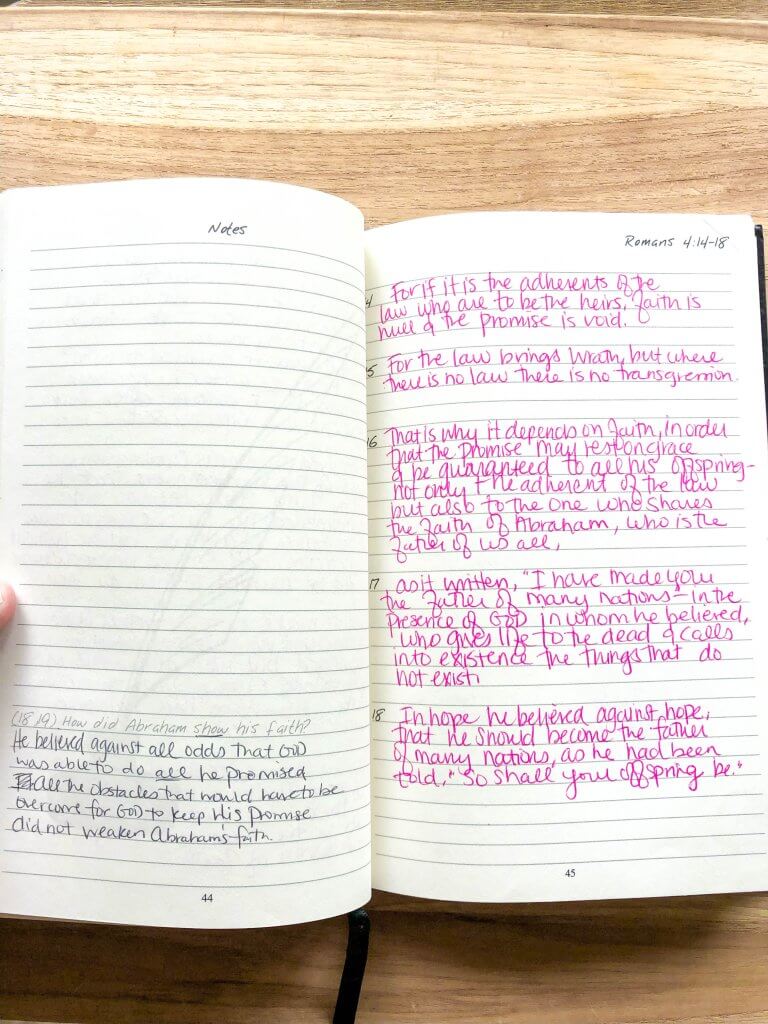 Notes
(18,19) How did Abraham show his faith?
He believed against all odds that GOD
was able to do all he promised
All the obstacles that would have to be
overcome for GOD to keep His promise
did not weaken Abraham's faith.
44
Romans 4:14-18
4 For if it is the adherents of the
law who are to be the heirs, faith is
null & the promise is void.
5 For the law brings wrath, but where
there is no law there is no transgression.
16 That is why it depends on faith, in order
that the promise may rest on grace
& be guaranteed to all his offspring-
not only the adherent of the law
but also to the one who shares
the faith of Abraham, who is the
father of us all,
17 as it written, "I have made you
the father of many nations - in the
presence of GOD in whom he believed,
who gives life to the dead & calls
into existence the things that do
not exist.
18 In hope he believed against hope,
that he should become the father
of many nations, as he had been
told, "So shall your offspring be."
45